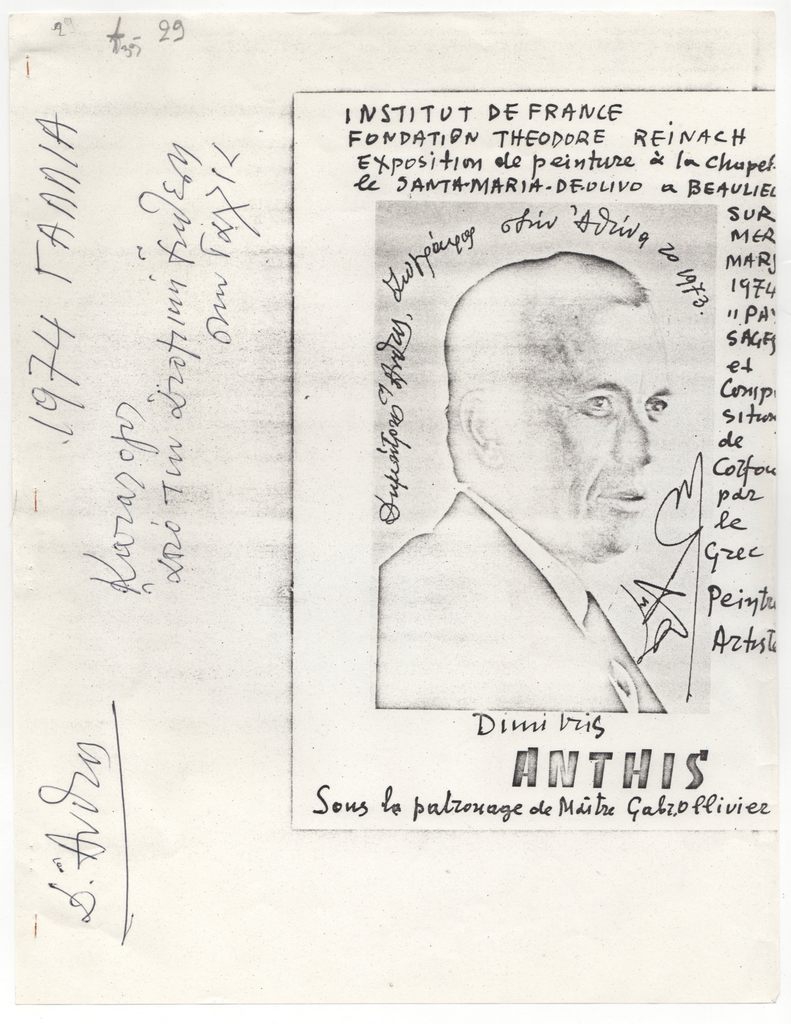 29
29
1974 ΓΑΛΛΙΑ
Κατάλογος
από την ατομική έκθεση
στη Γαλλία
Δ. Άνθης
INSTITUT DE FRANCE
FONDATION THEODORE REINACH
Exposition de peinture à la Chapel
le SANTA-MARIA-DE-OLIVO a BEAULIEU
SUR
MER
MARS
1974
"PAY
SAGES
et
Compo
sitions
de
Corfou
par
le
Grec
Peintre
Artiste
Δημήτρης Άνθης, Ζωγράφος στην Αθήνα 20 1973.
Dimitris
ANTHIS
Sous le patronage de Maître Gabr. Ollivier